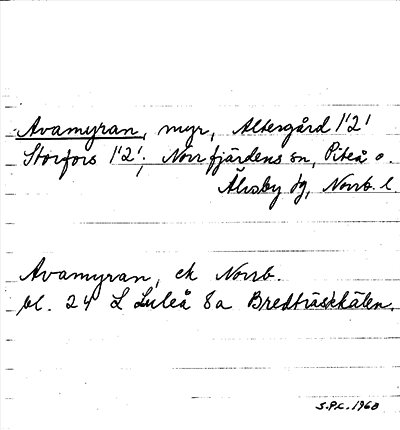 Avamyran, myr, Altersgård 1'2'
Storfors 1'2'; Norrfjärdens sn, Piteå o.
Älvsby tg, Norrb. l.
Avamyran, ek Norrb.
bl. 24 L Luleå 8a Bredträskkälen.
S.P.C. 1968